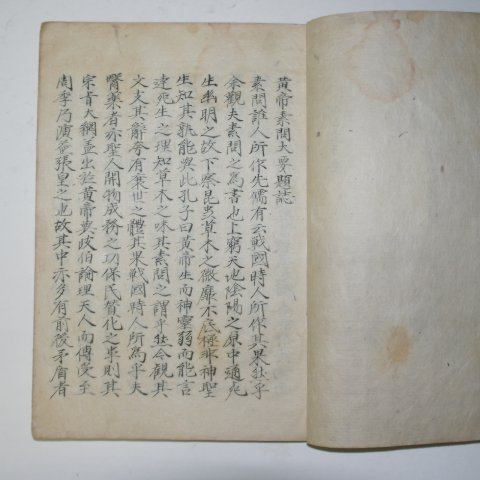 黃帝素問大要題誌
素問誰人所作先儒有云戰國時人所作其果然乎
余觀夫素問之爲書也上窮天地陰陽之
生幽明之故下察昆虫草木之微靡不
神聖
生知其孰能與此孔子曰黃帝生而神靈弱而能言
達死生之理知草木之味其素問之謂乎然今觀其
文支其辭
有衰世之體其果戰國時人所爲乎夫
醫藥者亦聖人開物成務之功保民贊化之事則其
宗旨大綱盖出於黃帝與岐伯論理天人而傳受至
周季乃演益張皇之也故其中亦多有前後矛盾者